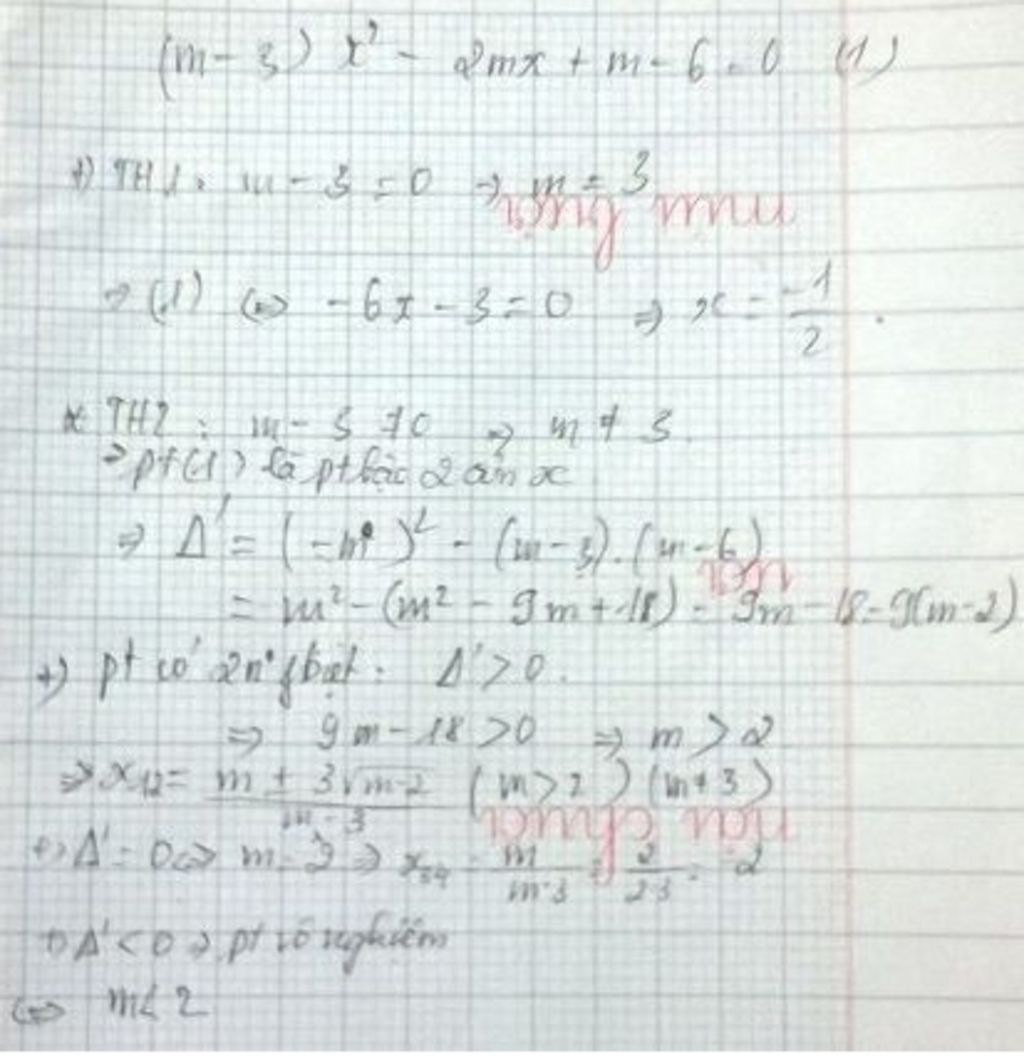 (m - 3) x² - 2mx + m - 6 = 0 (1)
+) TH1: m - 3 = 0 → m = 3
⇒ (1) ⇔ -6x - 3 = 0 ⇒ x = -1/2.
* TH2: m - 3 ≠ 0 ⇒ m ≠ 3.
⇒ pt(1) là pt bậc 2 ẩn x
⇒ Δ' = (-m)² - (m - 3).(m - 6)
= m² - (m² - 9m + 18) = 9m - 18 = 9(m-2)
+) pt có 2 n° fbiệt: Δ' > 0.
⇒ 9m - 18 > 0 ⇒ m > 2
⇒ x₁,₂ = (m ± 3√(m-2))/(m-3) (m > 2) (m ≠ 3)
+) Δ' = 0 ⇔ m = 2 ⇒ x₃₄ = m/(m-3) = 2/(2-3) = -2
+) Δ' < 0 ⇒ pt vô nghiệm
⇔ m < 2